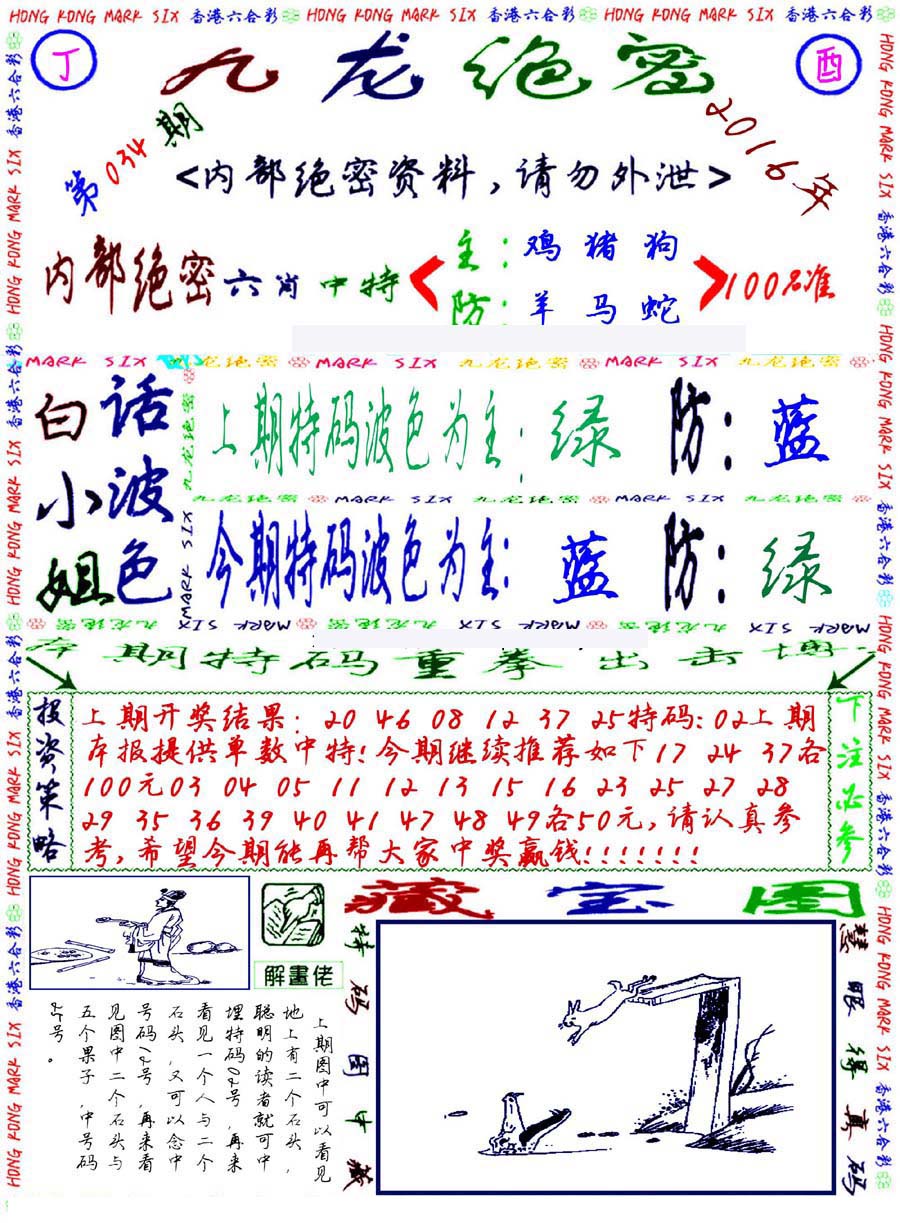 HONG KONG MARK SIX 香港六合彩 HONG KONG MARK SIX 香港六合彩 HONG KONG MARK SIX 香港六合彩
丁 九龙绝密 酉
第034期 2016年
<内部绝密资料,请勿外泄>
内部绝密六肖中特
主:鸡猪狗
防:羊马蛇
100%准
MARK SIX 九龙绝密 MARK SIX 九龙绝密 MARK SIX 九龙绝密
白小姐
话波色
上期特码波色为主:绿 防:蓝
九龙绝密 MARK SIX 九龙绝密 MARK SIX 九龙绝密
今期特码波色为主:蓝 防:绿
九龙绝密 MARK SIX 九龙绝密 MARK SIX 九龙绝密 MARK SIX
期特码重拳出击博
投资策略
上期开奖结果: 20 46 08 12 37 25特码:02上期
本报提供单数中特!今期继续推荐如下17 24 37各
100元03 04 05 11 12 13 15 16 23 25 27 28
29 35 36 39 40 41 47 48 49各50元,请认真参
考,希望今期能再帮大家中奖赢钱!!!!!!!
下注必参
解畫佬
上期图中可以看见
地上有二个石头,
聪明的读者就可中
埋特码02号,再来
看见一个人与二个
石头,又可以念中
号码12号,再来看
见图中二个石头与
五个果子,中号码
25号。
藏宝图
特码图中藏
慧眼得真码